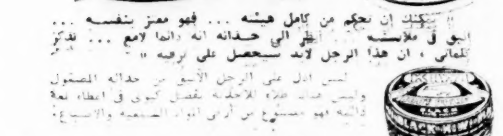 يمكنك إن تحكم من كامل هيئته ... فهو معتز بنفسه ...
انيق في ملابسه ... انظر الى حذائه انه دائما لامع ... تذكر
كلماتي ، ان هذا الرجل لابد سيحصل على ترقيه »
ليس ادل على الرجل الأنيق من حذائه المصقول
وليس هناك طلاء للأحذية يفضل كيوي في اعطاء لمعة
دائمة فهو مصنوع من أرقى المواد الشمعية والاصباغ
KIWI
BLACK